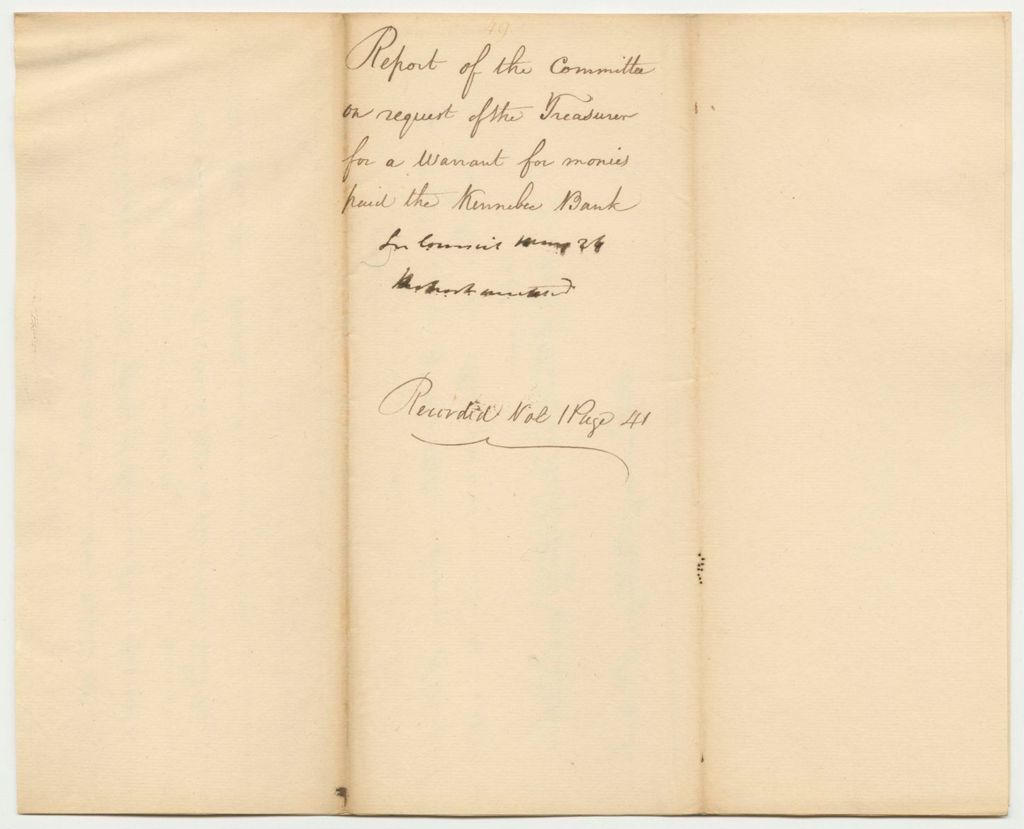 49
Report of the Committee
on request of the Treasurer
for a Warrant for monies
paid the Kennebec Bank
In Council 26
Recorded Vol 1 Page 41